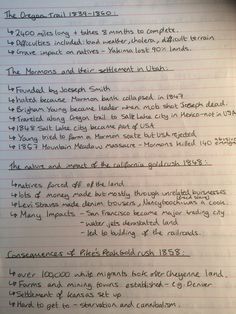 The Oregon Trail 1839-1860:
↳ 2400 miles long + takes 8 months to complete.
↳ Difficulties included: bad weather, cholera, difficult terrain
↳ Grave impact on natives - Yakima lost 90% lands.
The Mormons and their settlement in Utah:
↳ Founded by Joeseph Smith
↳ hated because Mormon bank collapsed in 1837
↳ Brigham Young became leader when mob shot Joseph dead.
↳ Traveled along Oregon trail to Salt Lake city in Mexico - not in USA
↳ 1848 Salt Lake city became part of USA
↳ Young tried to form a Mormon state but USA rejected.
↳ 1857 Mountain Meadow massacre - Mormons killed 140
The nature and impact of the california goldrush 1848:
↳ natives forced off of the land.
↳ lots of money made but mostly through unrelated businesses
↳ Levi Strauss made denim trousers, Nancy was a cook.
↳ Many impacts - San Francisco became major trading city
- water jets devastated land
- led to building of the railroads.
Consequences of Pike's Peak goldrush 1858:
↳ over 100,000 white migrants took over Cheyenne land.
↳ Farms and mining towns established - e.g. Denver
↳ Settlement of Kansas set up
↳ Hard to get to - starvation and cannibalism.